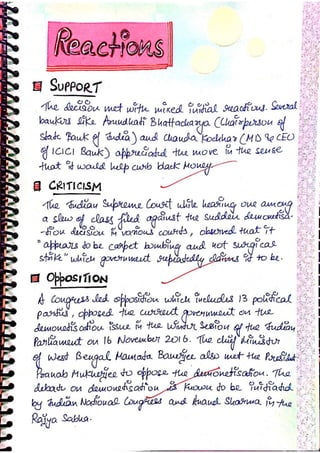 Reactions
SUPPORT
The decision met with mixed initial reactions. Several
bankers like Arundhati Bhattacharya (Chairperson of
State Bank of India) and Chanda Kochhar (MD & CEO
of ICICI Bank) appreciated the move in the sense
that it would help curb black money.
CRITICISM
The Indian Supreme Court while hearing one among
a slew of cases filed against the sudden demonetisa-
-tion decision in various courts, observed that it
"appears to be carpet bombing and not surgical
strike" which government repeatedly claims it to be.
OPPOSITION
A Congress led opposition which includes 13 political
parties, opposed the current government on the
demonetisation issue in the Winter Session of the Indian
Parliament on 16 November 2016. The chief Minister
of West Bengal Mamata Banerjee also met the President
Pranab Mukherjee to oppose the demonetisation. The
debate on demonetisation is known to be initiated
by Indian National Congress and Anand Sharma in the
Rajya Sabha.